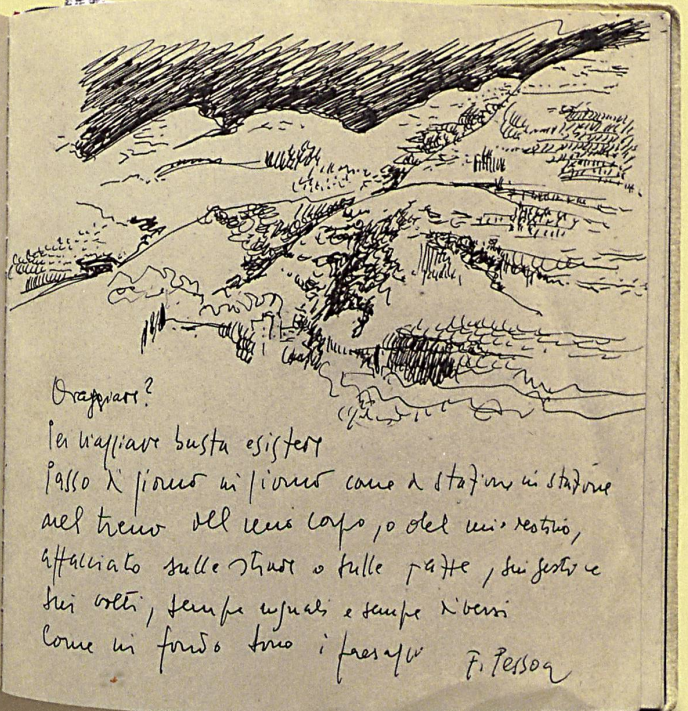 Viaggiare?
Per viaggiare basta esistere
Passo di giorno in giorno come di stazione in stazione
nel treno del mio corpo, o del mio destino,
affacciato sulle strade o sulle piazze, sui gesti e
sui volti, sempre uguali e sempre diversi
come in fondo sono i paesaggi
F. Pessoa